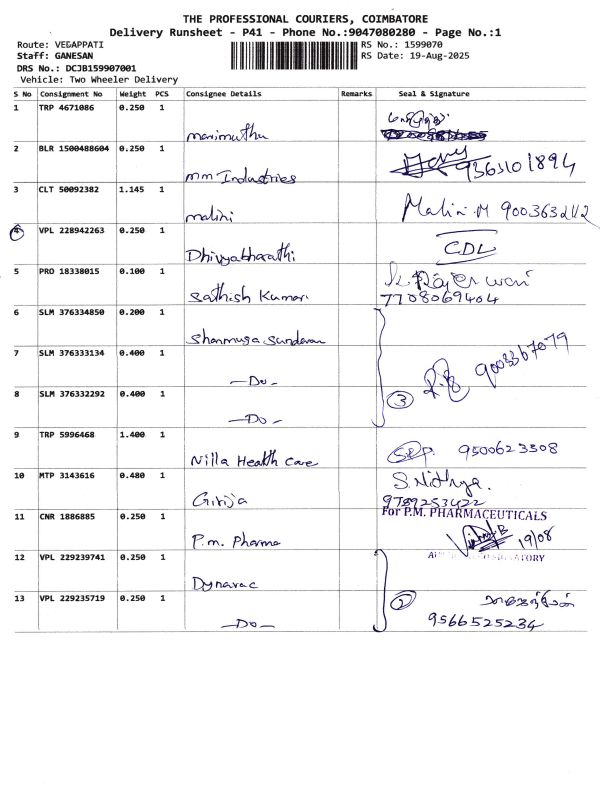 THE PROFESSIONAL COURIERS, COIMBATORE
Delivery Runsheet - P41 - Phone No.:9047080280 - Page No.:1
Route: VEDAPPATI
RS No.: 1599070
Staff: GANESAN
RS Date: 19-Aug-2025
DRS No.: DCJB159907001
Vehicle: Two Wheeler Delivery
S No Consignment No Weight PCS Consignee Details Remarks Seal & Signature
1 TRP 4671086 0.250 1
manimuthu
2 BLR 1500488604 0.250 1
mm Industries 9363101894
3 CLT 50092382 1.145 1
malini Malini.M 9003632112
4 VPL 228942263 0.250 1
Dhivyabharathi CDL
5 PRO 18338015 0.100 1
Sathish Kumar 7708069404
6 SLM 376334850 0.200 1
Shanmuga Sundaram
7 SLM 376333134 0.400 1
—Do— 9003367079
8 SLM 376332292 0.400 1 3
—Do—
9 TRP 5996468 1.400 1
Nilla Health Care 9500623308
10 MTP 3143616 0.480 1 S. Nithya.
Girija 9789253422
11 CNR 1886885 0.250 1 For P.M. PHARMACEUTICALS
P.m. Pharma 19/08
12 VPL 229239741 0.250 1
Dynavac
13 VPL 229235719 0.250 1 2
—Do— 9566525234